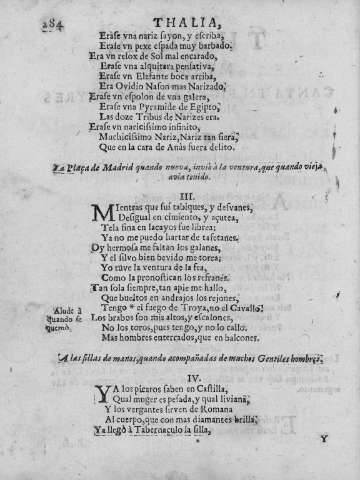 284 THALIA,
Erase vna nariz sayon, y escriba,
Erase vn pexe espada muy barbado.
Era vn relox de Sol mal encarado,
Erase vna alquitara pensativa,
Erase vn Elefante boca arriba,
Era Ovidio Nason mas Narizado.
Erase vn espolon de vna galera,
Erase vna Pyramide de Egipto,
Las doze Tribus de Narizes era.
Erase vn naricissimo infinito,
Muchicissimo Nariz, Nariz tan fiera,
Que en la cara de Anàs fuera delito.
La Plaça de Madrid quando nueva, invia à la ventura, que quando vieja
avia tenido.
III.
MIentras que fui tabiques, y desvanes,
Desigual en cimiento, y açutea,
Tela fina en lacayos fue librea;
Ya no me puedo hartar de tafetanes.
Oy hermosa me faltan los galanes,
Y el silvo bien bevido me torea;
Yo tuve la ventura de la fea,
Como la pronostican los refranes.
Tan sola siempre, tan apie me hallo,
Que bueltos en andrajos los rejones,
Tengo * el fuego de Troya, no el Cavallo.
Alude à
quando se
quemò.
Los brabos son mis altos, y escalones,
No los toros, pues tengo, y no lo callo.
Mas hombres enterrados, que en balcones.
A las sillas de manos, quando acompañadas de muchos Gentiles hombres.
IV.
YA los picaros saben en Castilla,
Qual muger es pesada, y qual liviana,
Y los vergantes sirven de Romana
Al cuerpo, que con mas diamantes brilla;
Ya llegò à Tabernaculo la silla,
Y